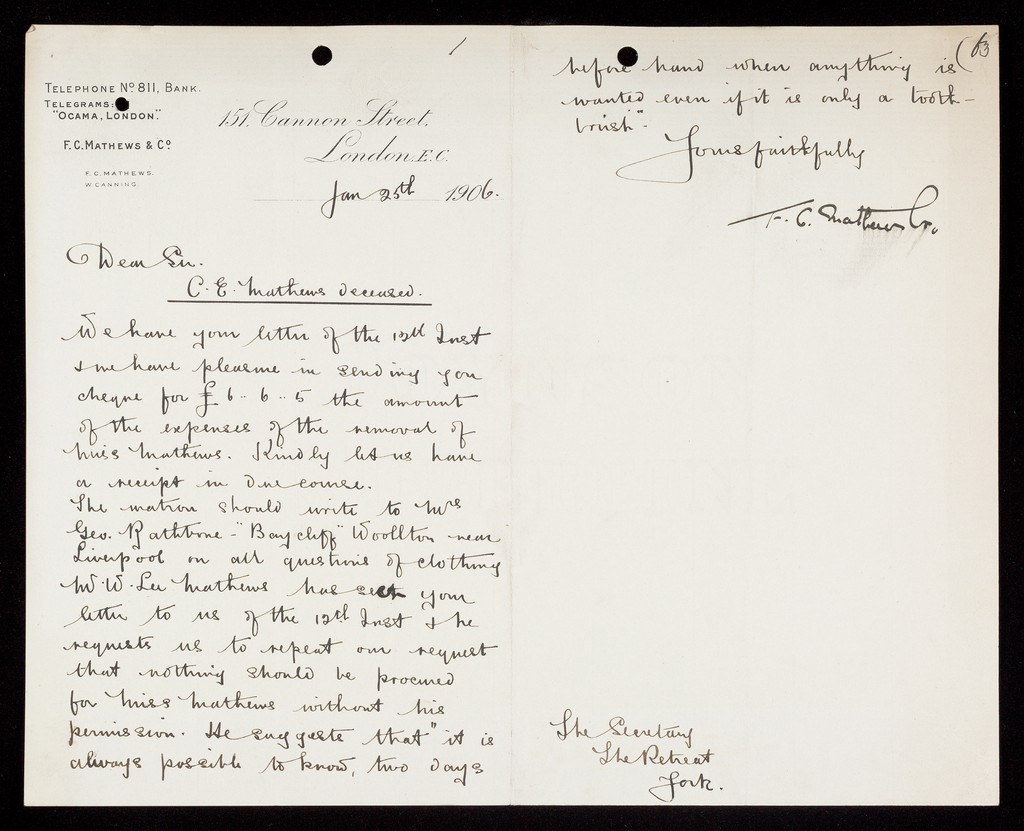 1
TELEPHONE No 811, BANK.
TELEGRAMS:
"OCAMA, LONDON."
F. C. MATHEWS & Co
F. C. MATHEWS.
W. CANNING.
151, Cannon Street,
London, E.C.
Jan 25th 1906.
Dear Sir.
C. E. Mathews deceased.
We have your letter of the 12th Inst
& we have pleasure in sending you
cheque for £6..6..5 the amount
of the expenses of the removal of
Miss Mathews. Kindly let us have
a receipt in due course.
The matron should write to Mrs
Geo. Rathbone - "Baycliff" Woollton near
Liverpool on all questions of clothing
Mr W. Lee Mathews has sent your
letter to us of the 12th Inst & he
requests us to repeat our request
that nothing should be procured
for Miss Mathews without his
permission. He suggests that "it is
always possible to know, two days
before hand when anything is
wanted even if it is only a tooth-
brush".
Yours faithfully
F. C. Mathews Co.
The Secretary
The Retreat
York.